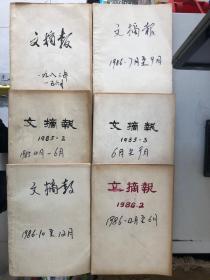 文摘報
一九八三年
一至六月
文摘報
1986-7月至9月
文摘報
1985-2
1985 4月-6月
文摘報
1985-3
6月至9月
文摘報
1986-10至12月
文摘報
1986.2
1986-4月至6月